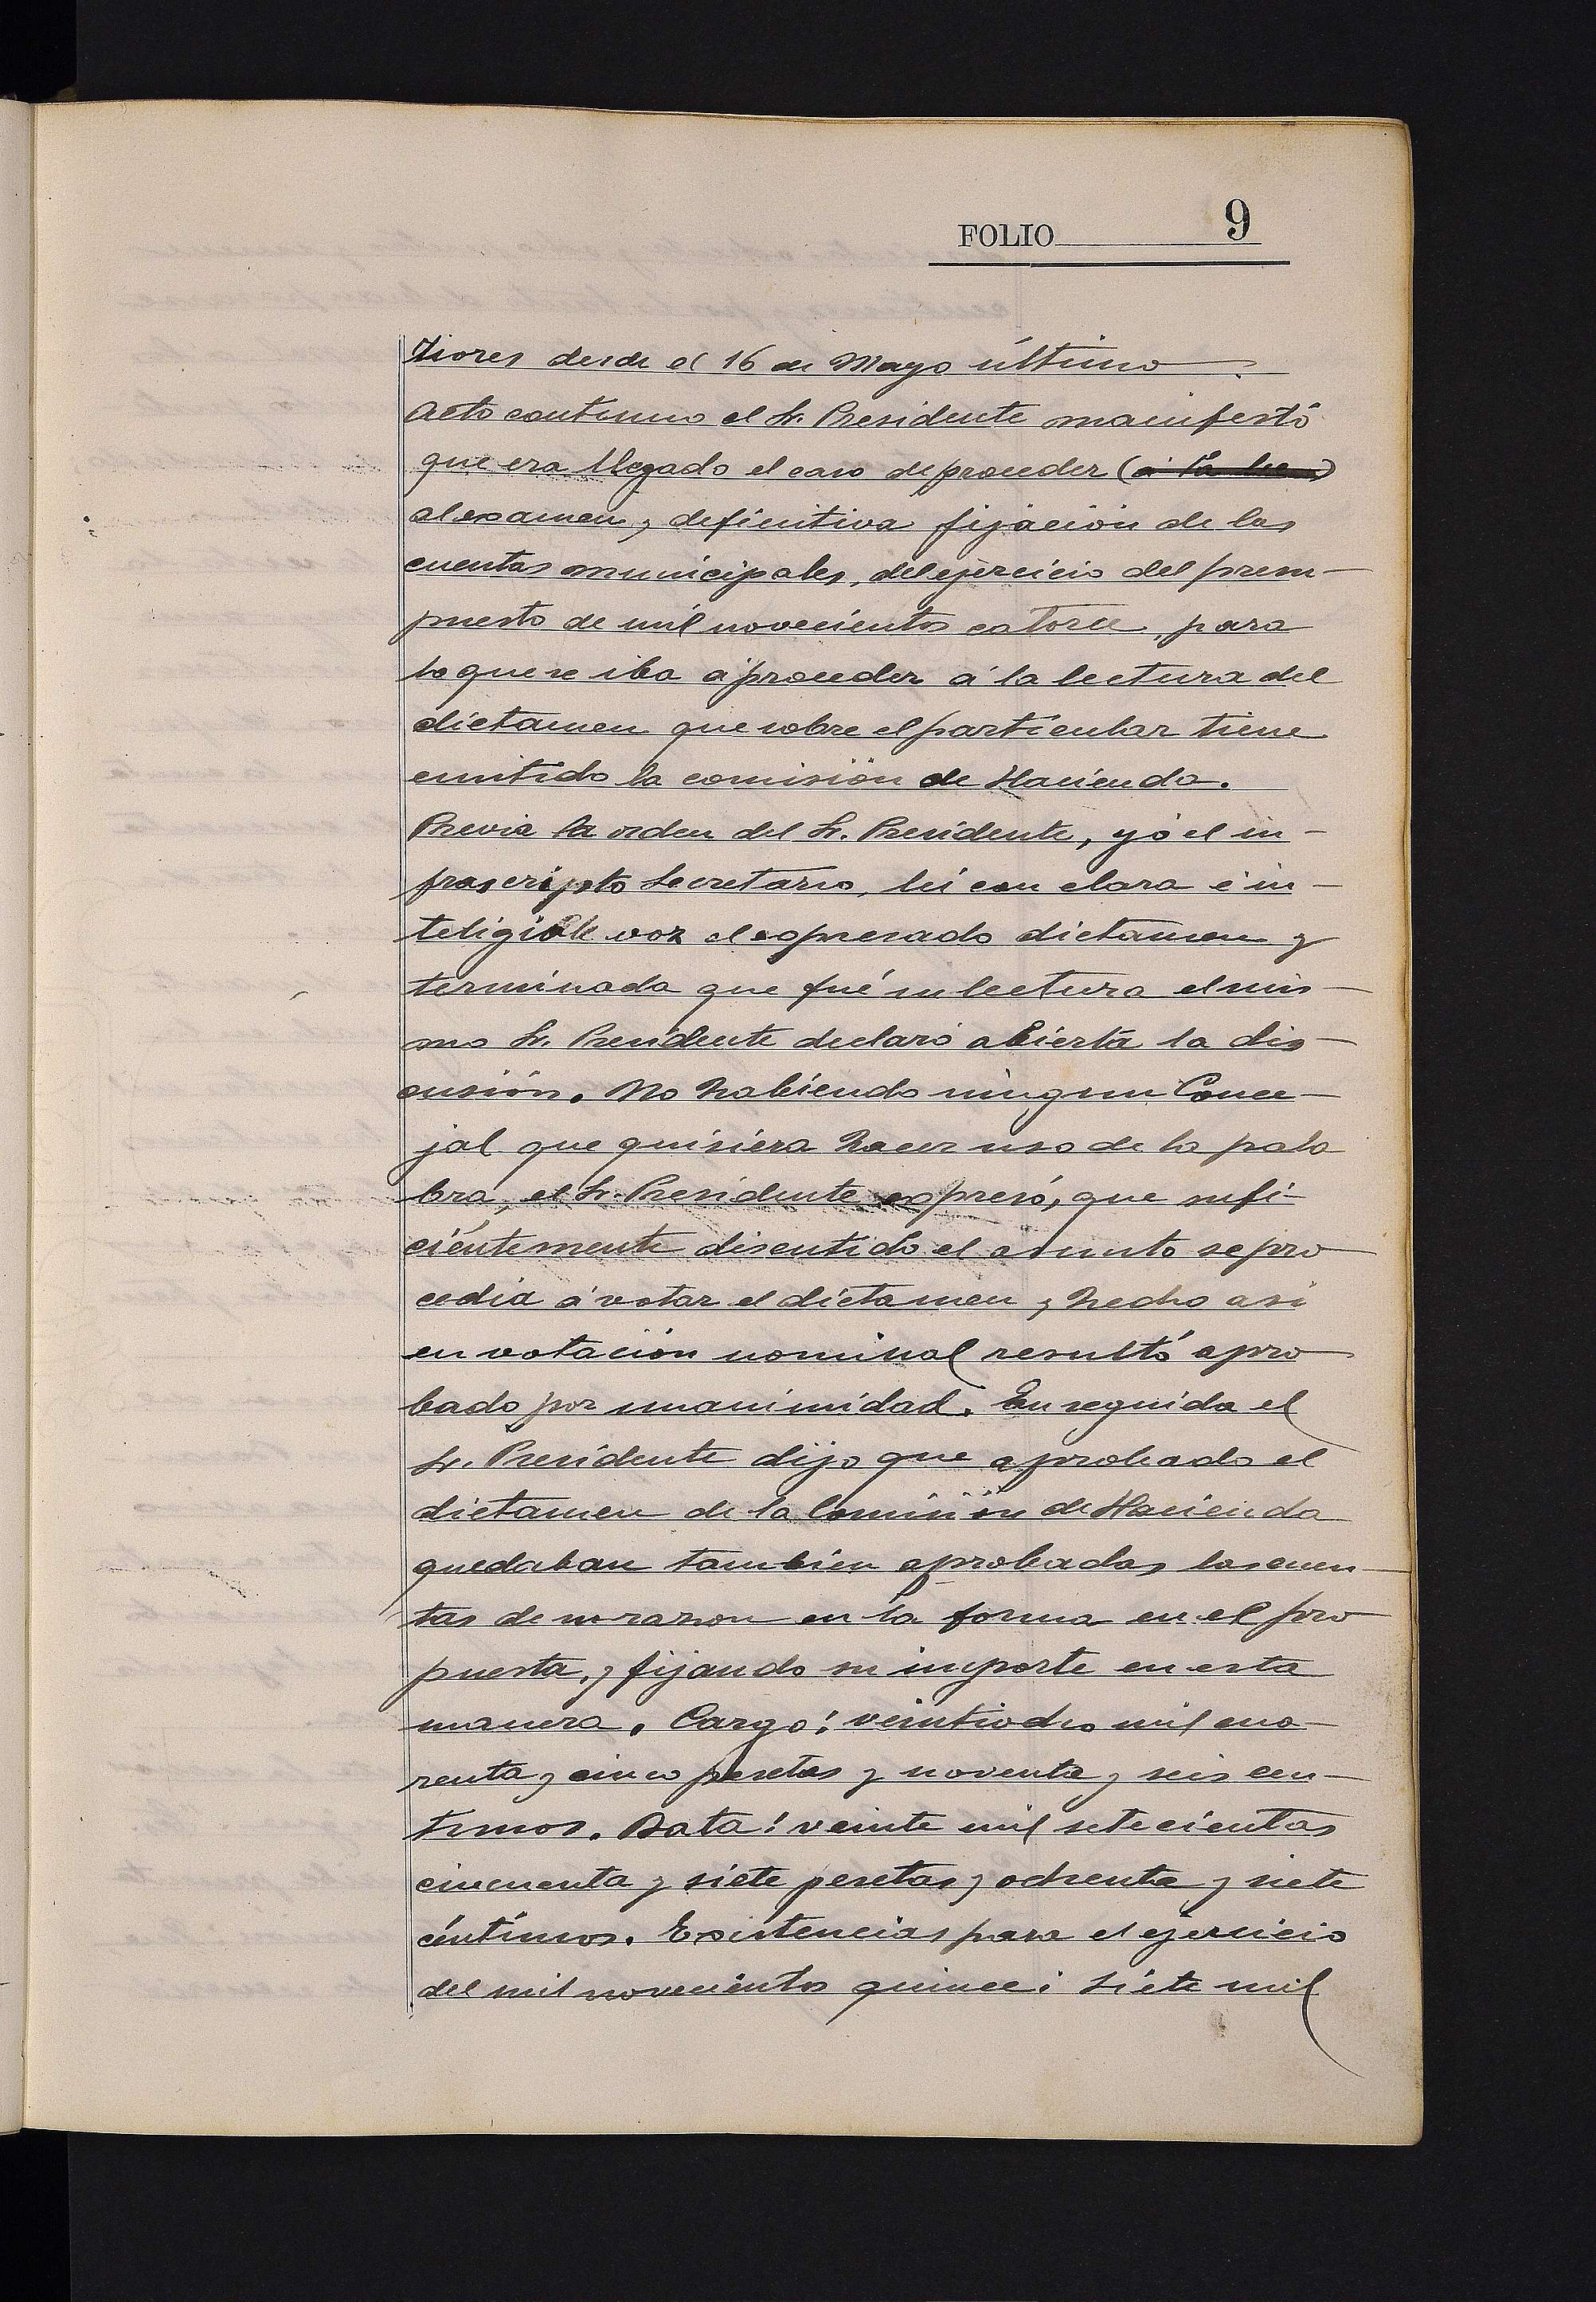 FOLIO 9
riores desde el 16 de Mayo último.
Acto continuo el Sr. Presidente manifestó
que era llegado el caso de proceder (á la lec)
al examen y definitiva fijación de las
cuentas municipales, del ejercicio del presu-
puesto de mil novecientos catorce, para
lo que se iba á proceder á la lectura del
dictamen que sobre el particular tiene
emitido la comisión de Hacienda.
Previa la orden del Sr. Presidente, yó el in-
frascripto Secretario, leí con clara é in-
teligible voz el expresado dictamen y
terminada que fué su lectura el mis-
mo Sr. Presidente declaró abierta la dis-
cusión. No habiendo ningun Conce-
jal que quisiera hacer uso de la pala
bra, el Sr. Presidente expresó, que sufi-
cientemente discutido el asunto se pro
cedia á votar el dictamen y hecho asi
en votación nominal resultó apro
bado por unanimidad. En seguida el
Sr. Presidente dijo que aprobado el
dictamen de la Comisión de Hacienda
quedaban tambien aprobadas las cuen-
tas de su razon en la forma en el pro
puesta, y fijando su importe en esta
manera. Cargo: veintiocho mil cua-
renta y cinco pesetas y noventa y seis cen-
timos. Data: veinte mil setecientas
cincuenta y siete pesetas y ochenta y siete
céntimos. Existencias para el ejercicio
del mil novecientos quince: Siete mil